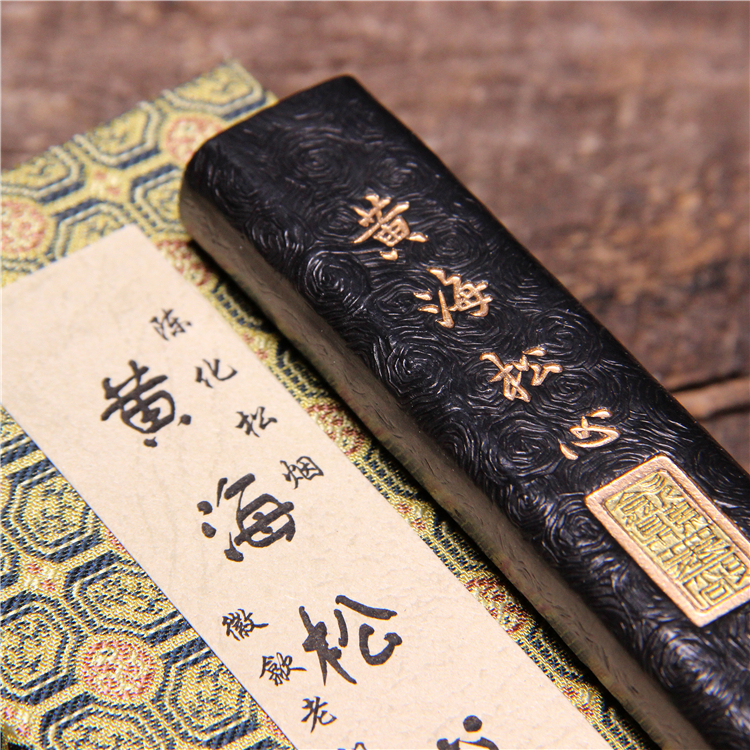 黄海松心
陈化松烟
黄海松
徽歙老